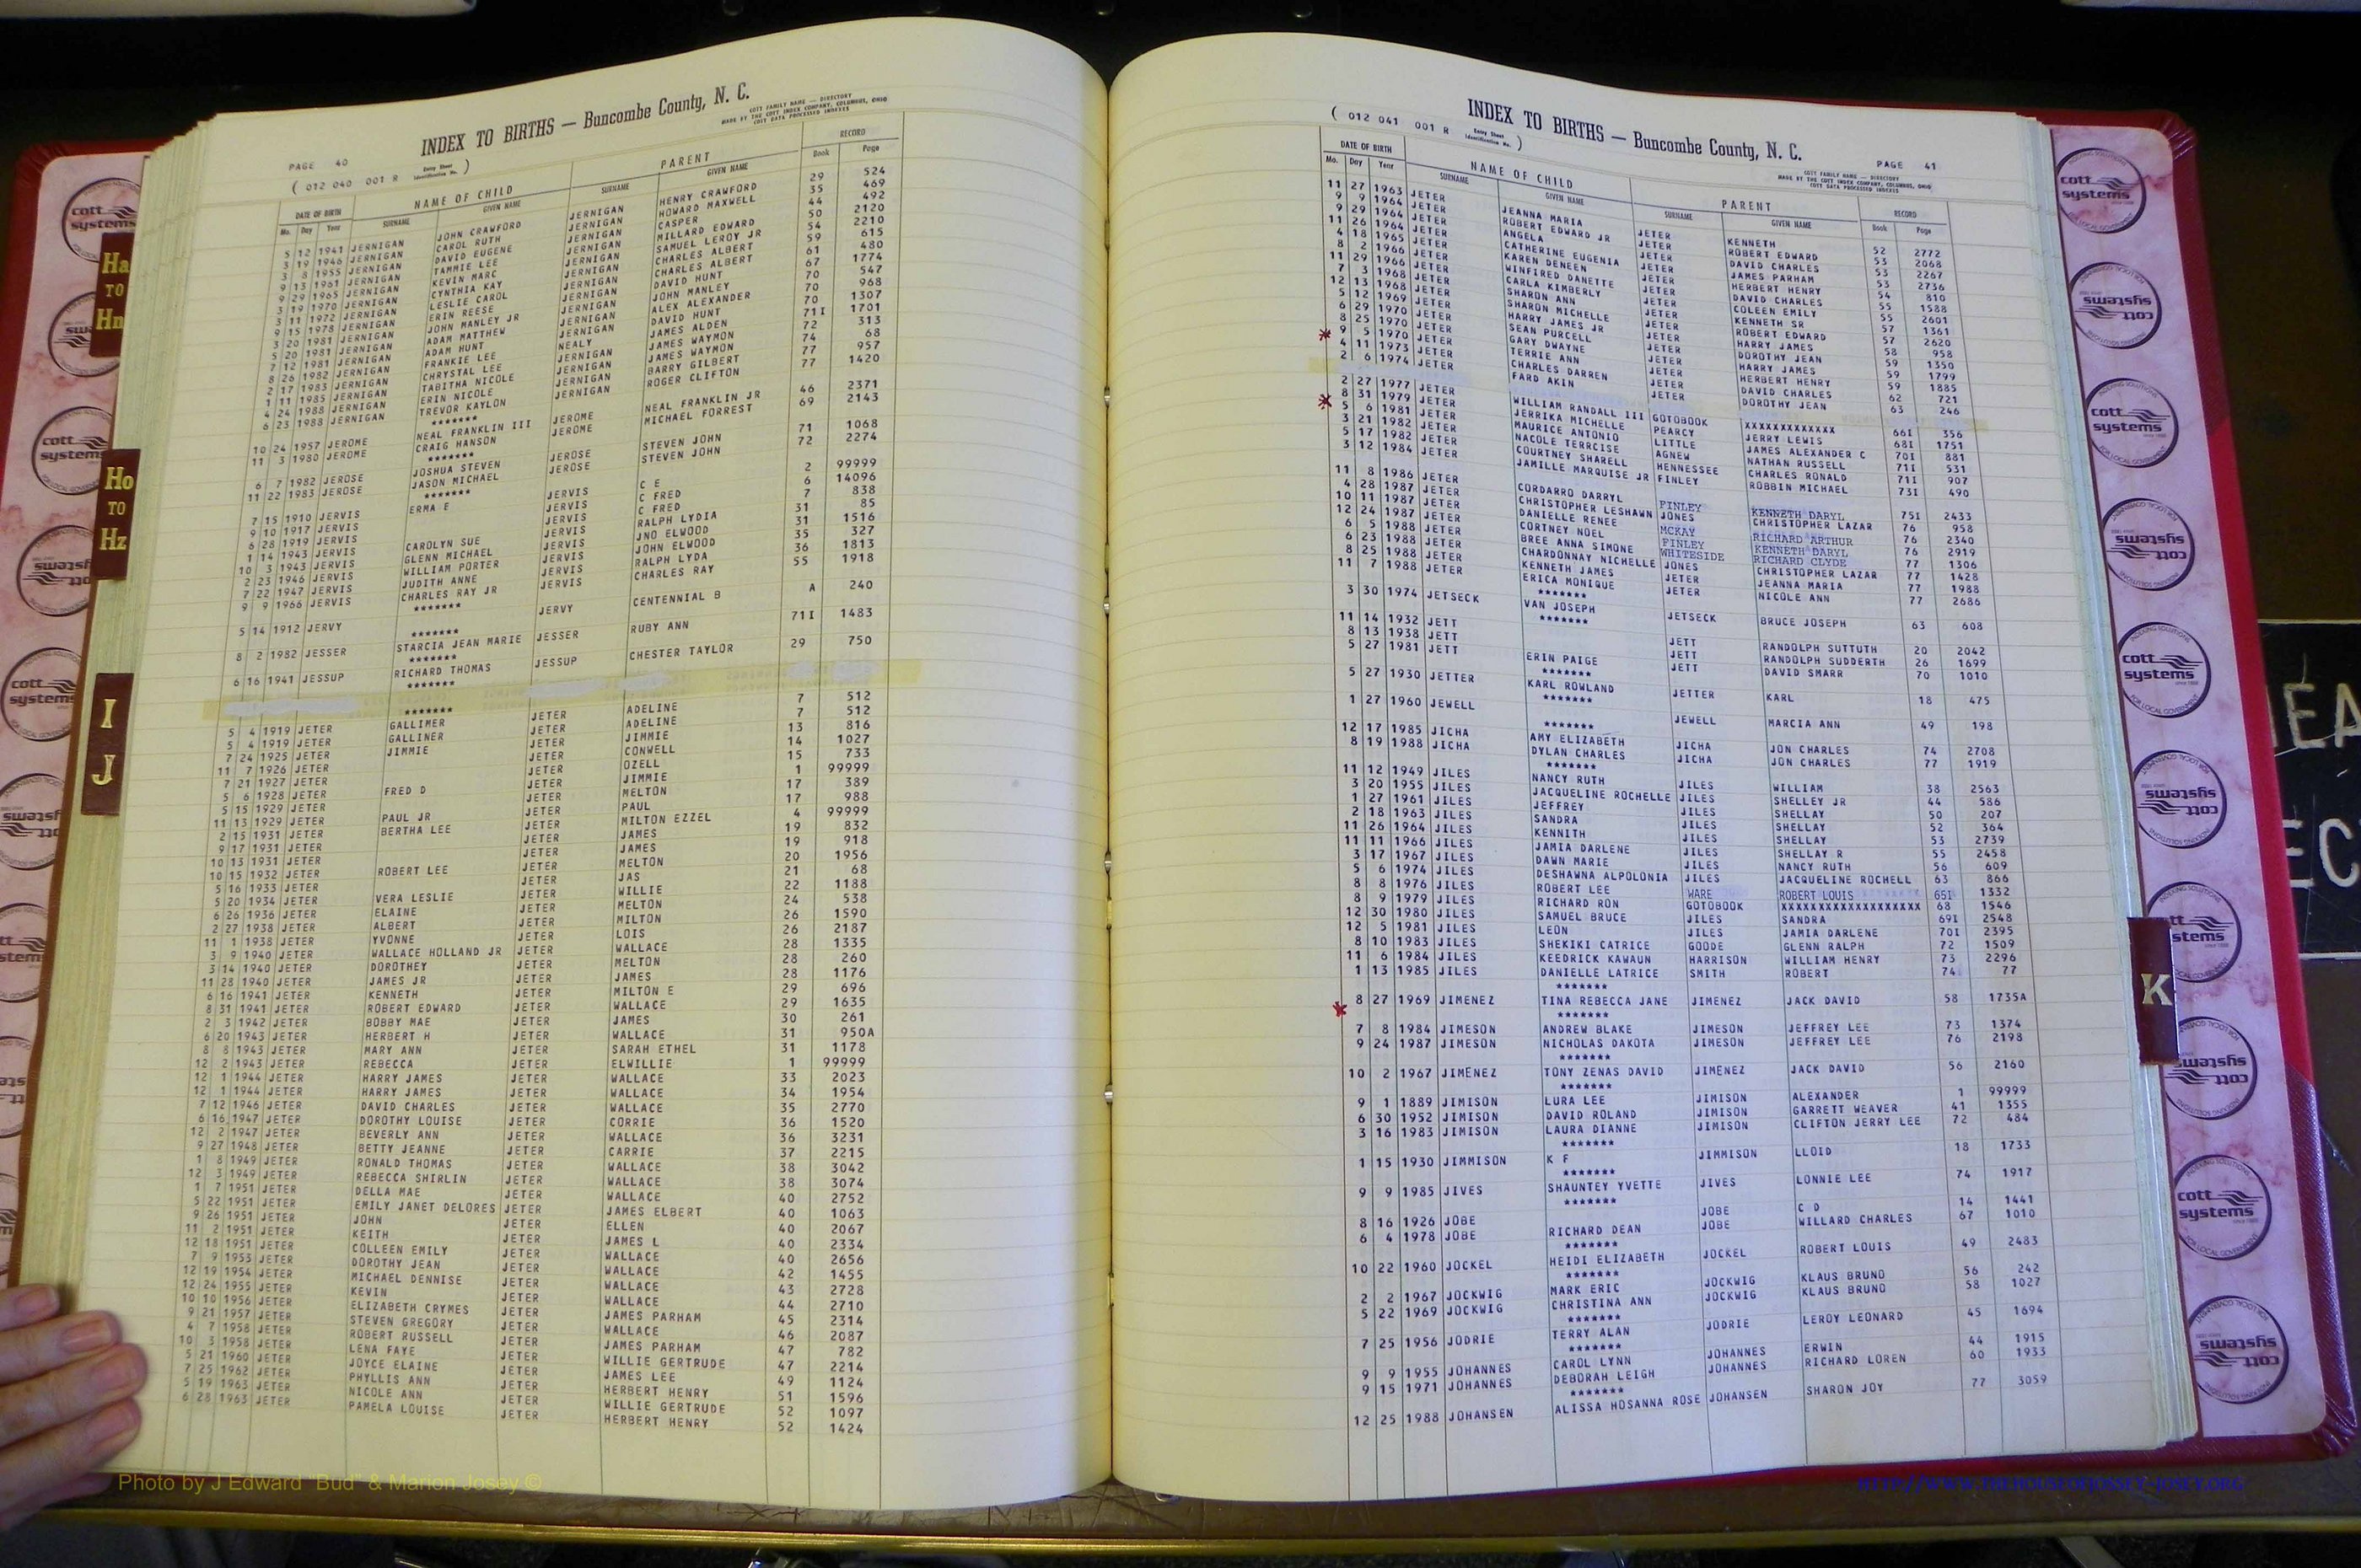 INDEX TO BIRTHS — Buncombe County, N. C.
COTT FAMILY NAME — DIRECTORY
MADE BY THE COTT INDEX COMPANY, COLUMBUS, OHIO
COTT DATA PROCESSED INDEXES
PAGE 40
( 012 040 001 R Entry Sheet Identification No. )
DATE OF BIRTH NAME OF CHILD PARENT RECORD
Mo. Day Year SURNAME GIVEN NAME SURNAME GIVEN NAME Book Page
5 12 1941 JERNIGAN JOHN CRAWFORD JERNIGAN HENRY CRAWFORD 29 524
3 19 1946 JERNIGAN CAROL RUTH JERNIGAN HOWARD MAXWELL 35 469
3 8 1955 JERNIGAN DAVID EUGENE JERNIGAN CASPER 44 492
9 13 1961 JERNIGAN TAMMIE LEE JERNIGAN MILLARD EDWARD 50 2120
9 29 1965 JERNIGAN KEVIN MARC JERNIGAN SAMUEL LEROY JR 54 2210
3 19 1970 JERNIGAN CYNTHIA KAY JERNIGAN CHARLES ALBERT 59 615
3 11 1972 JERNIGAN LESLIE CAROL JERNIGAN CHARLES ALBERT 61 480
9 15 1978 JERNIGAN ERIN REESE JERNIGAN DAVID HUNT 67 1774
3 20 1981 JERNIGAN JOHN MANLEY JR JERNIGAN JOHN MANLEY 70 547
5 20 1981 JERNIGAN ADAM MATTHEW JERNIGAN ALEX ALEXANDER 70 968
7 12 1981 JERNIGAN ADAM HUNT JERNIGAN DAVID HUNT 70 1307
8 26 1982 JERNIGAN FRANKIE LEE NEALY JAMES ALDEN 71I 1701
2 17 1983 JERNIGAN CHRYSTAL LEE JERNIGAN JAMES WAYMON 72 313
1 11 1985 JERNIGAN TABITHA NICOLE JERNIGAN JAMES WAYMON 74 68
4 24 1988 JERNIGAN ERIN NICOLE JERNIGAN BARRY GILBERT 77 957
6 23 1988 JERNIGAN TREVOR KAYLON JERNIGAN ROGER CLIFTON 77 1420
*******
10 24 1957 JEROME NEAL FRANKLIN III JEROME NEAL FRANKLIN JR 46 2371
11 3 1980 JEROME CRAIG HANSON JEROME MICHAEL FORREST 69 2143
*******
6 7 1982 JEROSE JOSHUA STEVEN JEROSE STEVEN JOHN 71 1068
11 22 1983 JEROSE JASON MICHAEL JEROSE STEVEN JOHN 72 2274
*******
7 15 1910 JERVIS ERMA E JERVIS C E 2 99999
9 10 1917 JERVIS JERVIS C FRED 6 14096
6 28 1919 JERVIS JERVIS C FRED 7 838
1 14 1943 JERVIS CAROLYN SUE JERVIS RALPH LYDIA 31 85
10 3 1943 JERVIS GLENN MICHAEL JERVIS JNO ELWOOD 31 1516
2 23 1946 JERVIS WILLIAM PORTER JERVIS JOHN ELWOOD 35 327
7 22 1947 JERVIS JUDITH ANNE JERVIS RALPH LYDA 36 1813
9 9 1966 JERVIS CHARLES RAY JR JERVIS CHARLES RAY 55 1918
*******
5 14 1912 JERVY JERVY CENTENNIAL B A 240
*******
8 2 1982 JESSER STARCIA JEAN MARIE JESSER RUBY ANN 71I 1483
*******
6 16 1941 JESSUP RICHARD THOMAS JESSUP CHESTER TAYLOR 29 750
*******
*******
5 4 1919 JETER GALLIMER JETER ADELINE 7 512
5 4 1919 JETER GALLINER JETER ADELINE 7 512
7 24 1925 JETER JIMMIE JETER JIMMIE 13 816
11 7 1926 JETER JETER CONWELL 14 1027
7 21 1927 JETER JETER OZELL 15 733
5 6 1928 JETER FRED D JETER JIMMIE 1 99999
5 15 1929 JETER JETER MELTON 17 389
11 13 1929 JETER PAUL JR JETER PAUL 17 988
2 15 1931 JETER BERTHA LEE JETER MILTON EZZEL 4 99999
9 17 1931 JETER JETER JAMES 19 832
10 13 1931 JETER JETER JAMES 19 918
10 15 1932 JETER ROBERT LEE JETER MELTON 20 1956
5 16 1933 JETER JETER JAS 21 68
5 20 1934 JETER VERA LESLIE JETER WILLIE 22 1188
6 26 1936 JETER ELAINE JETER MELTON 24 538
2 27 1938 JETER ALBERT JETER MILTON 26 1590
11 1 1938 JETER YVONNE JETER LOIS 26 2187
3 9 1940 JETER WALLACE HOLLAND JR JETER WALLACE 28 1335
3 14 1940 JETER DOROTHEY JETER MELTON 28 260
11 28 1940 JETER JAMES JR JETER JAMES 28 1176
6 16 1941 JETER KENNETH JETER MILTON E 29 696
8 31 1941 JETER ROBERT EDWARD JETER WALLACE 29 1635
2 3 1942 JETER BOBBY MAE JETER JAMES 30 261
6 20 1943 JETER HERBERT H JETER WALLACE 31 950A
8 8 1943 JETER MARY ANN JETER SARAH ETHEL 31 1178
12 2 1943 JETER REBECCA JETER ELWILLIE 1 99999
12 1 1944 JETER HARRY JAMES JETER WALLACE 33 2023
12 1 1944 JETER HARRY JAMES JETER WALLACE 34 1954
7 12 1946 JETER DAVID CHARLES JETER WALLACE 35 2770
6 16 1947 JETER DOROTHY LOUISE JETER CORRIE 36 1520
12 2 1947 JETER BEVERLY ANN JETER WALLACE 36 3231
9 27 1948 JETER BETTY JEANNE JETER CARRIE 37 2215
1 8 1949 JETER RONALD THOMAS JETER WALLACE 38 3042
12 3 1949 JETER REBECCA SHIRLIN JETER WALLACE 38 3074
1 7 1951 JETER DELLA MAE JETER WALLACE 40 2752
5 22 1951 JETER EMILY JANET DELORES JETER JAMES ELBERT 40 1063
9 26 1951 JETER JOHN JETER ELLEN 40 2067
11 2 1951 JETER KEITH JETER JAMES L 40 2334
12 18 1951 JETER COLLEEN EMILY JETER WALLACE 40 2656
7 9 1953 JETER DOROTHY JEAN JETER WALLACE 42 1455
12 19 1954 JETER MICHAEL DENNISE JETER WALLACE 43 2728
12 24 1955 JETER KEVIN JETER WALLACE 44 2710
10 10 1956 JETER ELIZABETH CRYMES JETER JAMES PARHAM 45 2314
9 21 1957 JETER STEVEN GREGORY JETER WALLACE 46 2087
4 7 1958 JETER ROBERT RUSSELL JETER JAMES PARHAM 47 782
10 3 1958 JETER LENA FAYE JETER WILLIE GERTRUDE 47 2214
5 21 1960 JETER JOYCE ELAINE JETER JAMES LEE 49 1124
7 25 1962 JETER PHYLLIS ANN JETER HERBERT HENRY 51 1596
5 19 1963 JETER NICOLE ANN JETER WILLIE GERTRUDE 52 1097
6 28 1963 JETER PAMELA LOUISE JETER HERBERT HENRY 52 1424
( 012 041 001 R Entry Sheet Identification No. )
INDEX TO BIRTHS — Buncombe County, N. C.
PAGE 41
COTT FAMILY NAME — DIRECTORY
MADE BY THE COTT INDEX COMPANY, COLUMBUS, OHIO
COTT DATA PROCESSED INDEXES
DATE OF BIRTH NAME OF CHILD PARENT RECORD
Mo. Day Year SURNAME GIVEN NAME SURNAME GIVEN NAME Book Page
11 27 1963 JETER JEANNA MARIA JETER KENNETH 52 2772
9 9 1964 JETER ROBERT EDWARD JR JETER ROBERT EDWARD 53 2068
9 29 1964 JETER ANGELA JETER DAVID CHARLES 53 2267
11 26 1964 JETER CATHERINE EUGENIA JETER JAMES PARHAM 53 2736
4 18 1965 JETER KAREN DENEEN JETER HERBERT HENRY 54 810
8 2 1966 JETER WINFIRED DANETTE JETER DAVID CHARLES 55 1588
11 29 1966 JETER CARLA KIMBERLY JETER COLEEN EMILY 55 2601
7 3 1968 JETER SHARON ANN JETER KENNETH SR 57 1361
12 13 1968 JETER SHARON MICHELLE JETER ROBERT EDWARD 57 2620
5 12 1969 JETER HARRY JAMES JR JETER HARRY JAMES 58 958
6 29 1970 JETER SEAN PURCELL JETER DOROTHY JEAN 59 1350
8 25 1970 JETER GARY DWAYNE JETER HARRY JAMES 59 1799
9 5 1970 JETER TERRIE ANN JETER HERBERT HENRY 59 1885
4 11 1973 JETER CHARLES DARREN JETER DAVID CHARLES 62 721
2 6 1974 JETER FARD AKIN JETER DOROTHY JEAN 63 246
2 27 1977 JETER WILLIAM RANDALL III GOTOBOOK XXXXXXXXXXXXX 66I 356
8 31 1979 JETER JERRIKA MICHELLE PEARCY JERRY LEWIS 68I 1751
5 6 1981 JETER MAURICE ANTONIO LITTLE JAMES ALEXANDER C 70I 881
3 21 1982 JETER NACOLE TERRCISE AGNEW NATHAN RUSSELL 71I 531
5 17 1982 JETER COURTNEY SHARELL HENNESSEE CHARLES RONALD 71I 907
3 12 1984 JETER JAMILLE MARQUISE JR FINLEY ROBBIN MICHAEL 73I 490
11 8 1986 JETER CORDARRO DARRYL FINLEY KENNETH DARYL 75I 2433
4 28 1987 JETER CHRISTOPHER LESHAWN JONES CHRISTOPHER LAZAR 76 958
10 11 1987 JETER DANIELLE RENEE MCKAY RICHARD ARTHUR 76 2340
12 24 1987 JETER CORTNEY NOEL FINLEY KENNETH DARYL 76 2919
6 5 1988 JETER BREE ANNA SIMONE WHITESIDE RICHARD CLYDE 77 1306
6 23 1988 JETER CHARDONNAY NICHELLE JONES CHRISTOPHER LAZAR 77 1428
8 25 1988 JETER KENNETH JAMES JETER JEANNA MARIA 77 1988
11 7 1988 JETER ERICA MONIQUE JETER NICOLE ANN 77 2686
*******
3 30 1974 JETSECK VAN JOSEPH JETSECK BRUCE JOSEPH 63 608
*******
11 14 1932 JETT JETT RANDOLPH SUTTUTH 20 2042
8 13 1938 JETT JETT RANDOLPH SUDDERTH 26 1699
5 27 1981 JETT ERIN PAIGE JETT DAVID SMARR 70 1010
*******
5 27 1930 JETTER KARL ROWLAND JETTER KARL 18 475
*******
1 27 1960 JEWELL JEWELL MARCIA ANN 49 198
*******
12 17 1985 JICHA AMY ELIZABETH JICHA JON CHARLES 74 2708
8 19 1988 JICHA DYLAN CHARLES JICHA JON CHARLES 77 1919
*******
11 12 1949 JILES NANCY RUTH JILES WILLIAM 38 2563
3 20 1955 JILES JACQUELINE ROCHELLE JILES SHELLEY JR 44 586
1 27 1961 JILES JEFFREY JILES SHELLAY 50 207
2 18 1963 JILES SANDRA JILES SHELLAY 52 364
11 26 1964 JILES KENNITH JILES SHELLAY 53 2739
11 11 1966 JILES JAMIA DARLENE JILES SHELLAY R 55 2458
3 17 1967 JILES DAWN MARIE JILES NANCY RUTH 56 609
5 6 1974 JILES DESHAWNA ALPOLONIA JILES JACQUELINE ROCHELL 63 866
8 8 1976 JILES ROBERT LEE WARE ROBERT LOUIS 65I 1332
8 9 1979 JILES RICHARD RON GOTOBOOK XXXXXXXXXXXXXXXXXXX 68 1546
12 30 1980 JILES SAMUEL BRUCE JILES SANDRA 69I 2548
12 5 1981 JILES LEON JILES JAMIA DARLENE 70I 2395
8 10 1983 JILES SHEKIKI CATRICE GOODE GLENN RALPH 72 1509
11 6 1984 JILES KEEDRICK KAWAUN HARRISON WILLIAM HENRY 73 2296
1 13 1985 JILES DANIELLE LATRICE SMITH ROBERT 74 77
*******
8 27 1969 JIMENEZ TINA REBECCA JANE JIMENEZ JACK DAVID 58 1735A
*******
7 8 1984 JIMESON ANDREW BLAKE JIMESON JEFFREY LEE 73 1374
9 24 1987 JIMESON NICHOLAS DAKOTA JIMESON JEFFREY LEE 76 2198
*******
10 2 1967 JIMENEZ TONY ZENAS DAVID JIMENEZ JACK DAVID 56 2160
*******
9 1 1889 JIMISON LURA LEE JIMISON ALEXANDER 1 99999
6 30 1952 JIMISON DAVID ROLAND JIMISON GARRETT WEAVER 41 1355
3 16 1983 JIMISON LAURA DIANNE JIMISON CLIFTON JERRY LEE 72 484
*******
1 15 1930 JIMMISON K F JIMMISON LLOID 18 1733
*******
9 9 1985 JIVES SHAUNTEY YVETTE JIVES LONNIE LEE 74 1917
*******
8 16 1926 JOBE JOBE C D 14 1441
6 4 1978 JOBE RICHARD DEAN JOBE WILLARD CHARLES 67 1010
*******
10 22 1960 JOCKEL HEIDI ELIZABETH JOCKEL ROBERT LOUIS 49 2483
*******
2 2 1967 JOCKWIG MARK ERIC JOCKWIG KLAUS BRUNO 56 242
5 22 1969 JOCKWIG CHRISTINA ANN JOCKWIG KLAUS BRUNO 58 1027
*******
7 25 1956 JODRIE TERRY ALAN JODRIE LEROY LEONARD 45 1694
*******
9 9 1955 JOHANNES CAROL LYNN JOHANNES ERWIN 44 1915
9 15 1971 JOHANNES DEBORAH LEIGH JOHANNES RICHARD LOREN 60 1933
*******
12 25 1988 JOHANSEN ALISSA HOSANNA ROSE JOHANSEN SHARON JOY 77 3059
Ha TO Hn
Ho TO Hz
I
J
K
cott systems
Photo by J Edward "Bud" & Marion Josey ©
HTTP://WWW.THEHOUSEOFJOSSEY-JOSEY.ORG